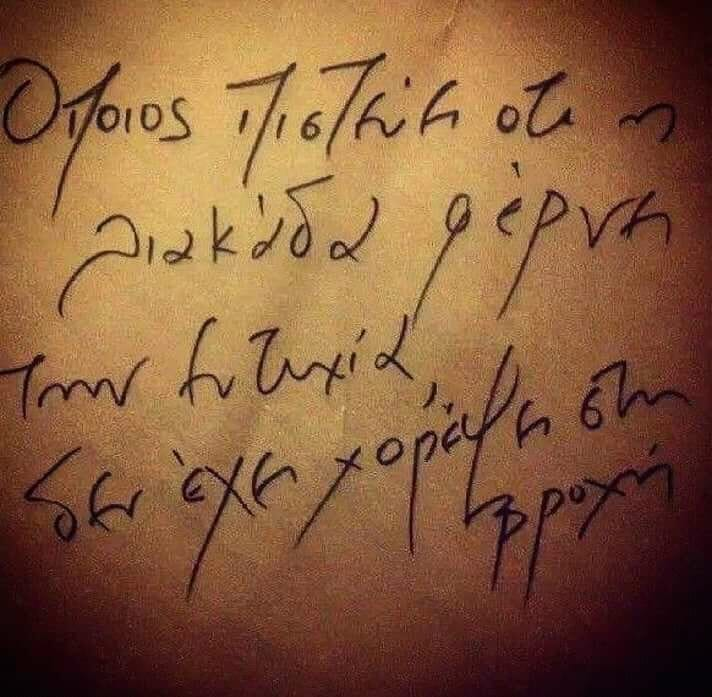 Όποιος πιστεύει οτι η
λιακάδα φέρνει
την ευτυχία,
δεν έχει χορέψει στη
βροχή